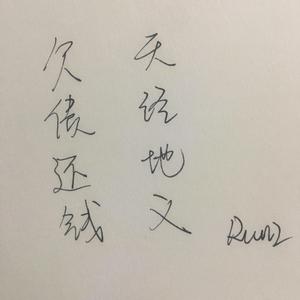 欠债还钱
天经地义